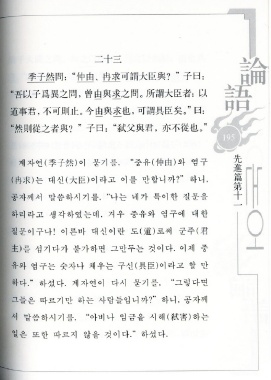 二十三
季子然問: “仲由、冉求可謂大臣與?” 子曰:
“吾以子爲異之問, 曾由與求之問。所謂大臣者: 以
道事君, 不可則止。今由與求也, 可謂具臣矣。” 曰:
“然則從之者與?” 子曰: “弑父與君, 亦不從也。”
계자연(季子然)이 묻기를, “중유(仲由)와 염구
(冉求)는 대신(大臣)이라고 이를 만합니까?” 하니,
공자께서 말씀하시기를, “나는 네가 특이한 질문을
하리라고 생각하였는데, 겨우 중유와 염구에 대한
질문이구나! 이른바 대신이란 도(道)로써 군주(君
主)를 섬기다가 불가하면 그만두는 것이다. 이제 중
유와 염구는 숫자나 채우는 구신(具臣)이라고 할 만
하다.” 하셨다. 계자연이 다시 묻기를, “그렇다면
그들은 따르기만 하는 사람들입니까?” 하니, 공자께
서 말씀하시기를, “아비나 임금을 시해(弑害)하는
일은 또한 따르지 않을 것이다.” 하셨다.
論語
195
先進篇第十一